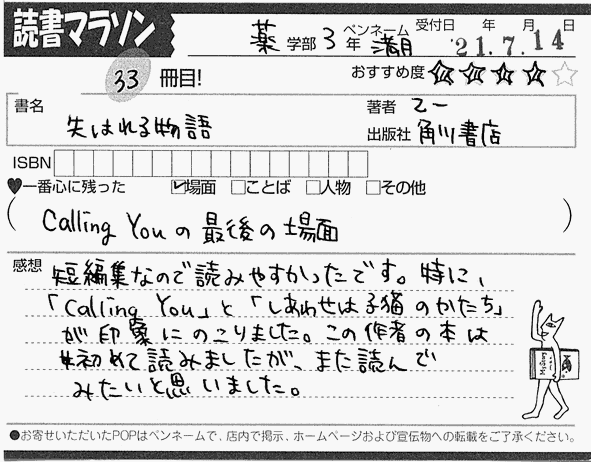 読書マラソン
薬 学部 3 年 ペンネーム 満月 受付日 年 月 日 '21.7.14
33 冊目! おすすめ度 ★★★★☆
書名 失はれる物語
著者 乙一
出版社 角川書店
ISBN
♥一番心に残った ☑場面 □ことば □人物 □その他
(Calling Youの最後の場面)
感想 短編集なので読みやすかったです。特に、
「Calling You」と「しあわせは子猫のかたち」
が印象にのこりました。この作者の本は
初めて読みましたが、また読んで
みたいと思いました。
●お寄せいただいたPOPはペンネームで、店内で掲示、ホームページおよび宣伝物への転載をご了承ください。